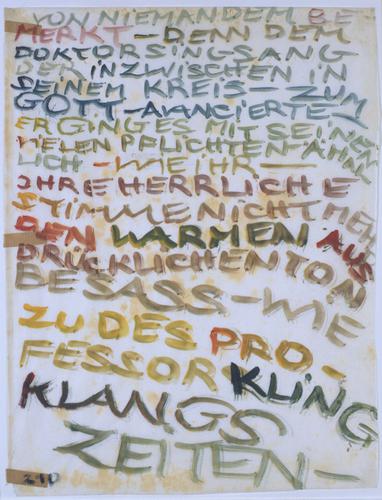 VON NIEMANDEM BE
MERKT – DENN DEM
DOKTOR SINGSANG
DER INZWISCHEN IN
SEINEM KREIS – ZUM
GOTT – AVANCIERTE –
ERGING ES MIT SEINEN
VIELEN PFLICHTEN – ÄHN
LICH – WIE IHR –
IHRE HERRLICHE
STIMME NICHT MEHR
DEN WARMEN AUS
DRÜCKLICHEN TON
BESASS – WIE
ZU DES PRO –
FESSOR KLING
KLANGS
ZEITEN –